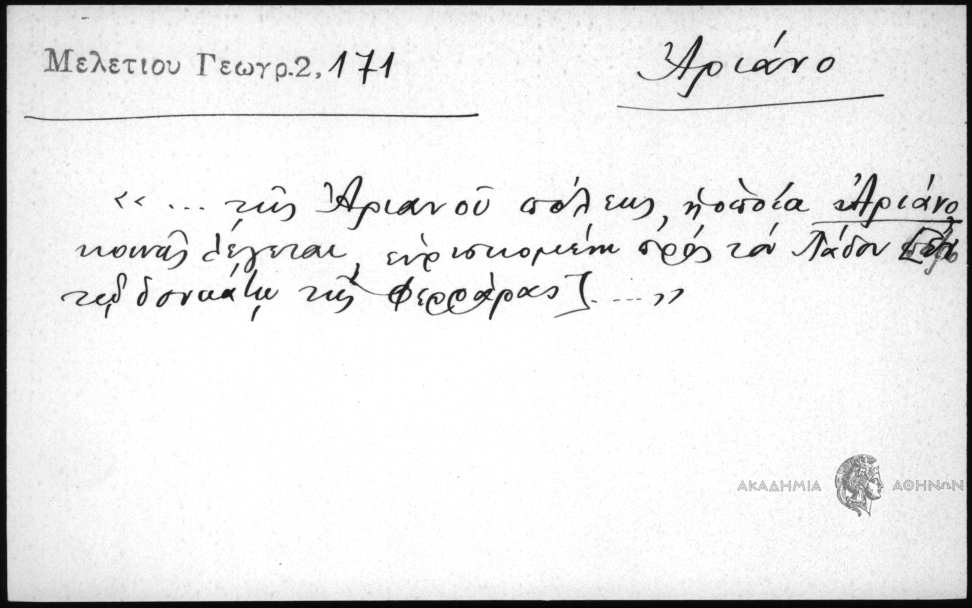 Μελετιου Γεωγρ. 2, 171
Ἀριάνο
«... τῆς Ἀριανοῦ πόλεως, ἡ ὁποία Ἀριάνο
κοινῶς λέγεται, εὑρισκομένη πρὸς τὸν Πάδον [ἐν
τῷ δουκάτῳ τῆς Φερράρας] ....»
ΑΚΑΔΗΜΙΑ ΑΘΗΝΩΝ